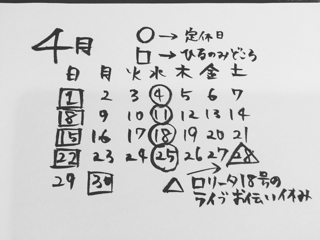 4月
○→定休日
□→ひるのみどころ
日 月 火 水 木 金 土
1 2 3 4 5 6 7
8 9 10 11 12 13 14
15 16 17 18 19 20 21
22 23 24 25 26 27 28
29 30
△→ロリータ18号の
ライブお伝い休み